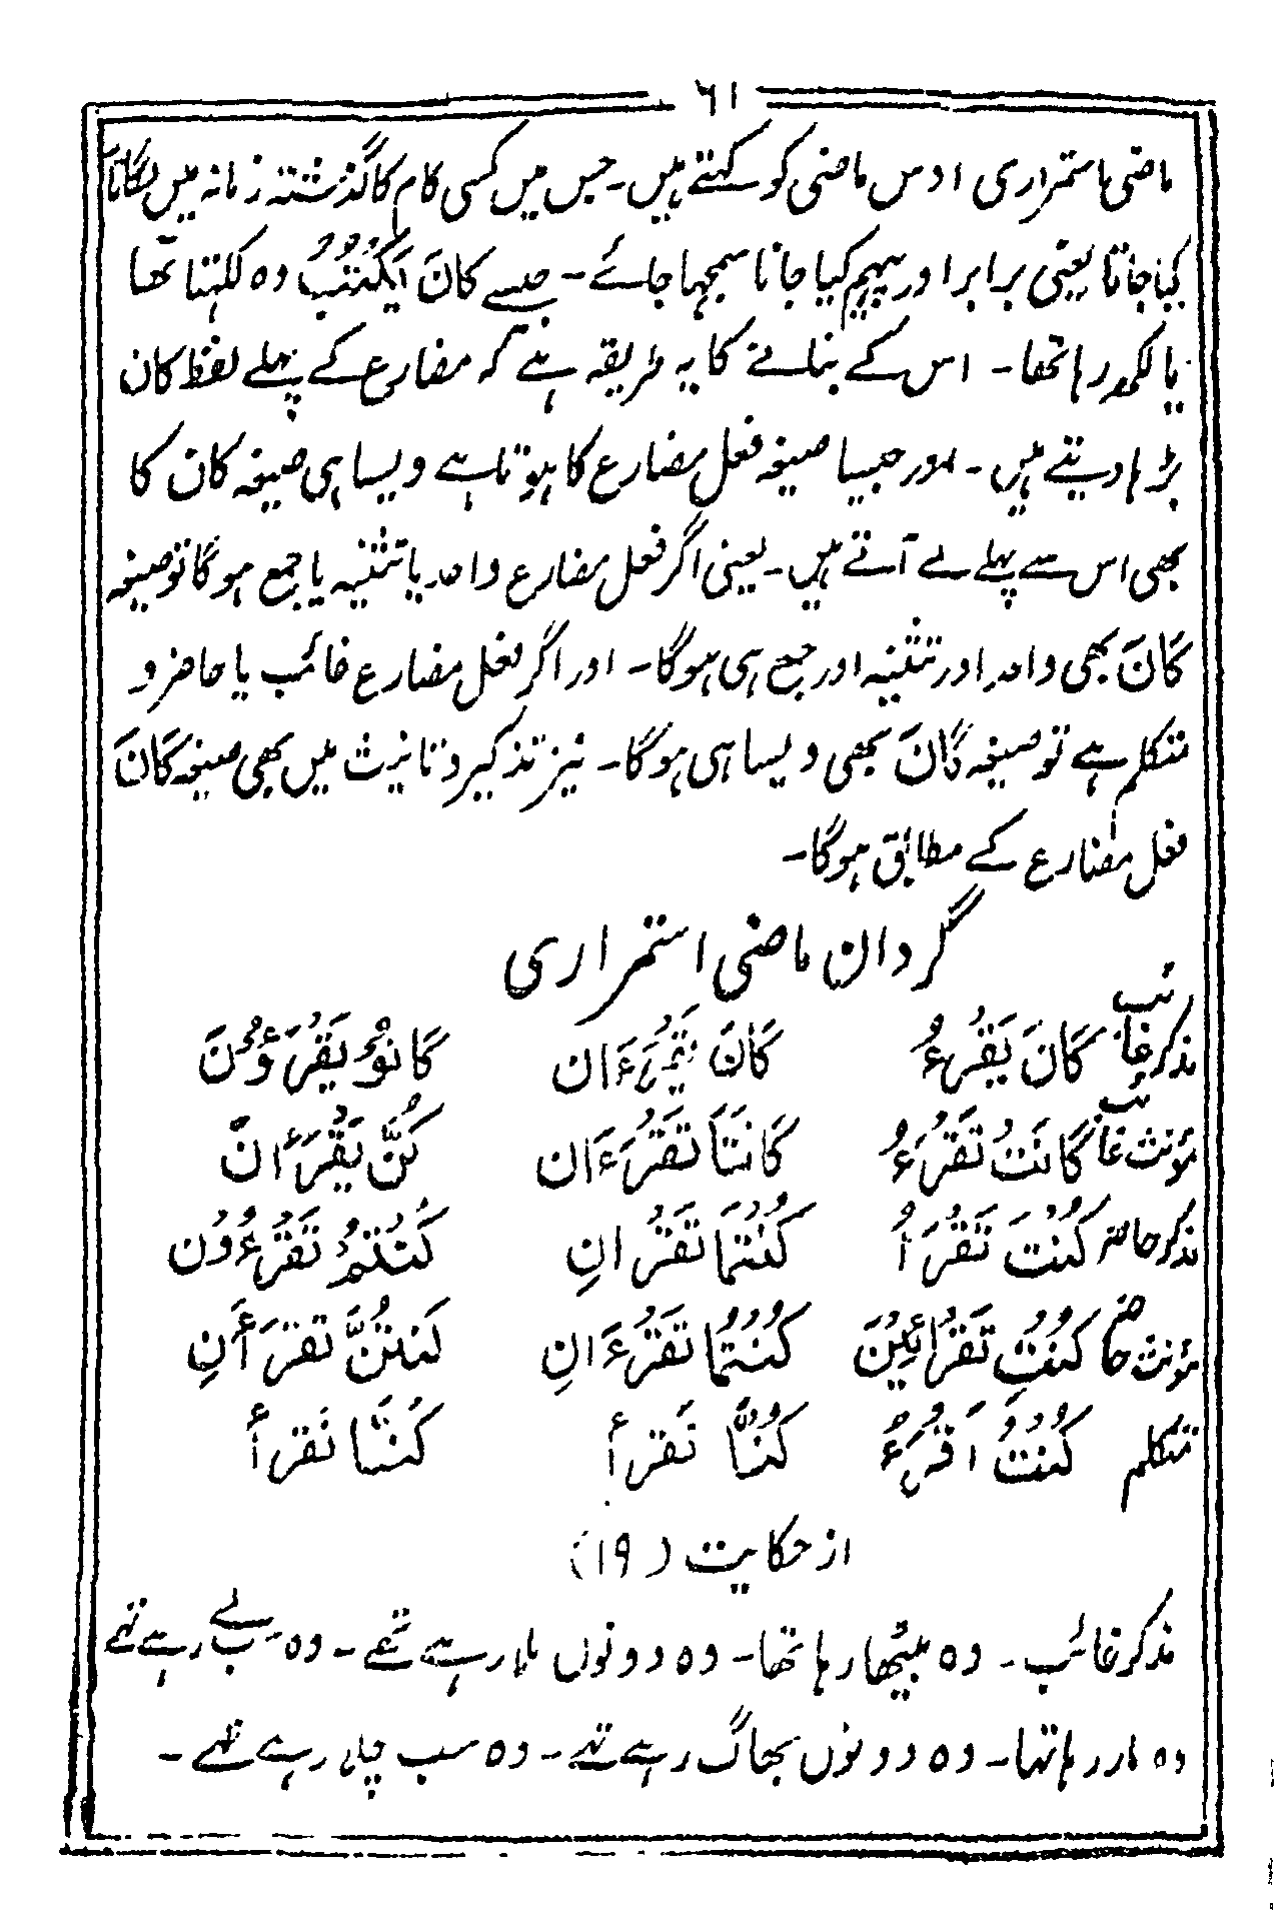 ۶۱
ماضی استمراری اوس ماضی کو کہتے ہیں۔ جس میں کسی کام کا گذشتہ زمانہ میں لگاتار
کیا جاتا یعنی برابر اور پیہم کیا جانا سمجہا جائے۔ جیسے کَانَ یَکْتُبُ وہ لکہتا تھا
یا لکھ رہا تھا۔ اس کے بنانے کا یہ طریقہ ہے کہ مضارع کے پہلے لفظ کان
بڑہا دیتے ہیں۔ اور جیسا صیغہ فعل مضارع کا ہوتا ہے ویسا ہی صیغہ کان کا
بھی اس سے پہلے لے آتے ہیں۔ یعنی اگر فعل مضارع واحد یا تثنیہ یا جمع ہوگا تو صیغہ
کَانَ بھی واحد اور تثنیہ اور جمع ہی ہوگا۔ اور اگر فعل مضارع غائب یا حاضر و
متکلم ہے تو صیغہ کَانَ بھی ویسا ہی ہوگا۔ نیز تذکیر و تانیث میں بھی صیغہ کَانَ
فعل مضارع کے مطابق ہوگا۔
گردان ماضی استمراری
مذکر غائب کَانَ یَقْرَءُ کَانَ یَقْرَءَان کَانُوْ یَقْرَءُوْنَ
مؤنث غائب کَانَتْ تَقْرَءُ کَانَتَا تَقْرَءَان کُنَّ یَقْرَأنَ
مذکر حاضر کُنْتَ تَقْرَأُ کُنْتُمَا تَقْرَانِ کُنْتُمْ تَقْرَءُوْن
مؤنث حاضر کُنْتِ تَقْرَائِیْنَ کُنْتُمَا تَقْرَءَانِ کُنتُنَّ تقرَأنِ
متکلم کُنْتُ اَقْرَءُ کُنَّا نَقرأ کُنَّا نَقرأ
از حکایت (۱۹)
مذکر غائب۔ وہ بیٹھا رہا تھا۔ وہ دونوں ملا رہے تھے۔ وہ سب لے رہے تھے
وہ مار رہا تہا۔ وہ دونوں بھاگ رہے تھے۔ وہ سب چل رہے تھے۔